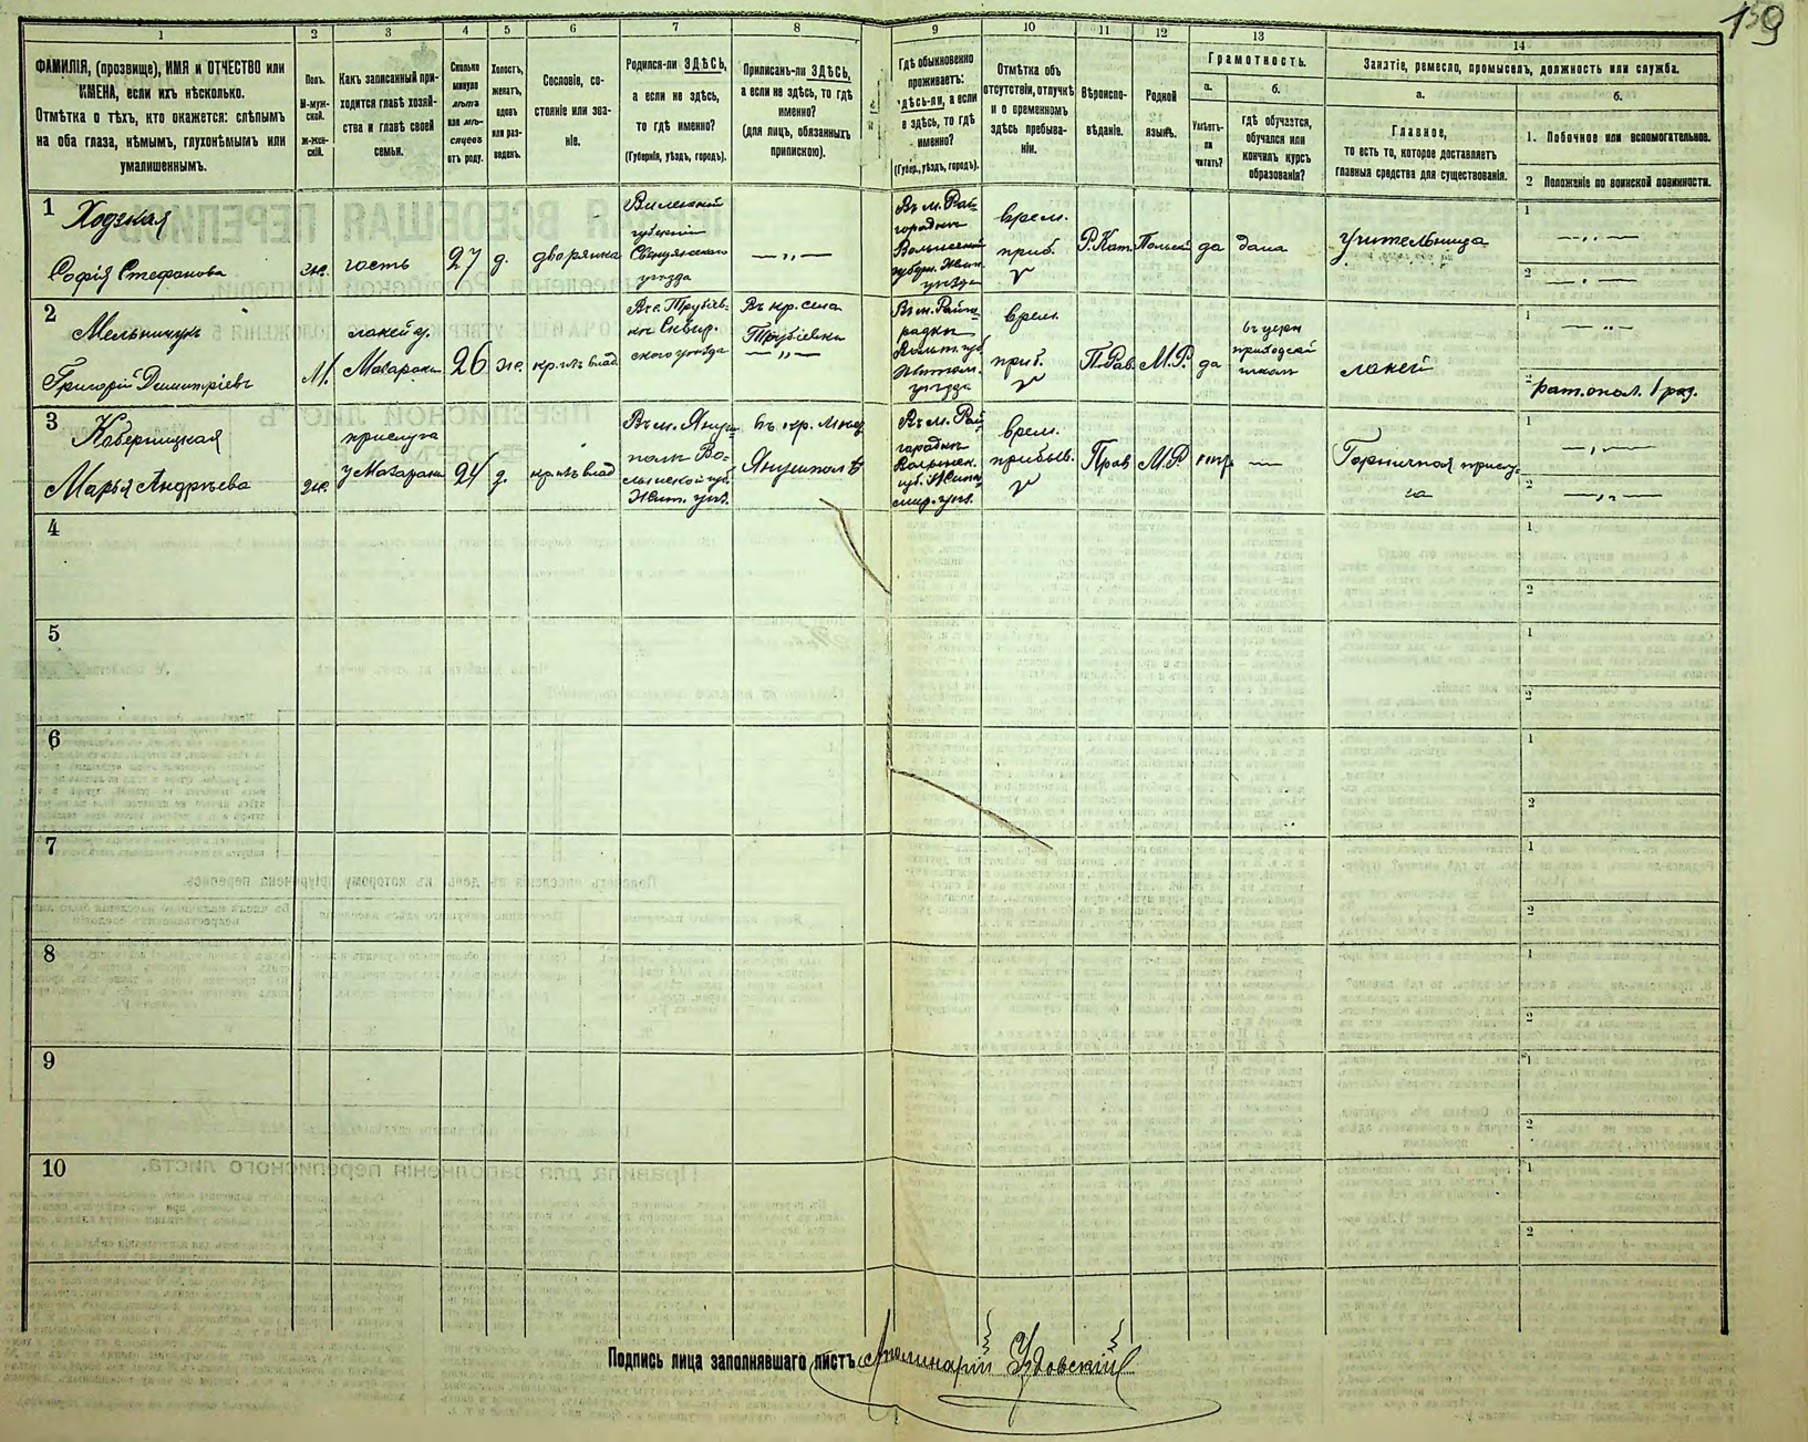 159
1
2
3
4
5
6
7
8
9
10
11
12
13
14
ФАМИЛІЯ, (прозвище), ИМЯ и ОТЧЕСТВО или
ИМЕНА, если ихъ нѣсколько.
Отмѣтка о тѣхъ, кто окажется: слѣпымъ
на оба глаза, нѣмымъ, глухонѣмымъ или
умалишеннымъ.
Полъ.
М-муж-
ской.
Ж-жен-
скій.
Какъ записанный при-
ходится главѣ хозяй-
ства и главѣ своей
семьи.
Сколько
минуло
лѣтъ
или мѣ-
сяцевъ
отъ роду.
Холостъ,
женатъ,
вдовъ
или раз-
веденъ.
Сословіе, со-
стояніе или зва-
ніе.
Родился-ли ЗДѢСЬ,
а если не здѣсь,
то гдѣ именно?
(Губернія, уѣздъ, городъ).
Приписанъ-ли ЗДѢСЬ,
а если не здѣсь, то гдѣ
именно?
(для лицъ, обязанныхъ
припискою).
Гдѣ обыкновенно
проживаетъ:
здѣсь-ли, а если
не здѣсь, то гдѣ
именно?
(Губер., уѣздъ, городъ).
Отмѣтка объ
отсутствіи, отлучкѣ
и о временномъ
здѣсь пребыва-
ніи.
Вѣроиспо-
вѣданіе.
Родной
языкъ.
Грамотность.
а.
Умѣетъ-
ли
читать?
б.
гдѣ обучается,
обучался или
кончилъ курсъ
образованія?
Занятіе, ремесло, промыселъ, должность или служба.
а.
Главное,
то есть то, которое доставляетъ
главныя средства для существованія.
б.
1. Побочное или вспомогательное.
2 Положеніе по воинской повинности.
1
Ходзкая
Софія Стефанова
ж.
гость
27
д.
дворянка
Виленской
губерніи
Свенцянскаго
уѣзда
— „ —
Въ м. Рай-
городкѣ
Волынской
губерн. Жит.
уѣзда
врем.
приб.
Р. Кат.
Польск
да
дома
Учительница
1
— „ —
2
— „ —
2
Мельничукъ
Григорій Димитріевъ
М.
лакей у
Мазараки
26
ж.
кр. изъ влад.
Въ с. Трубіев-
кѣ Сквир-
скаго уѣзда
Въ кр. села
Трубіевки
— „ —
Въ м. Райго-
родкѣ
Волын. губ.
Житом.
уѣзда
врем.
приб.
Прав.
М.Р.
да
въ церк
приходской
школѣ
лакей
1
— „ —
2
рат. опол. 1 раз.
3
Марья Андрѣева
ж.
прислуга
у Мазараки
24
д.
кр. изъ влад
Въ м. Януш-
полѣ Во-
лынской губ.
Жит. уѣз.
Янушполь
Въ м. Рай-
городкѣ
Волынск.
губ. Жито-
мир. уѣз.
врем.
прибыв.
Прав
М.Р.
нѣтъ
—
Горничная прислу-
га
1
— „ —
2
— „ —
4
1
2
5
1
2
6
1
2
7
1
2
8
1
2
9
1
2
10
1
2
Подпись лица заполнявшаго листъ Аполинарій